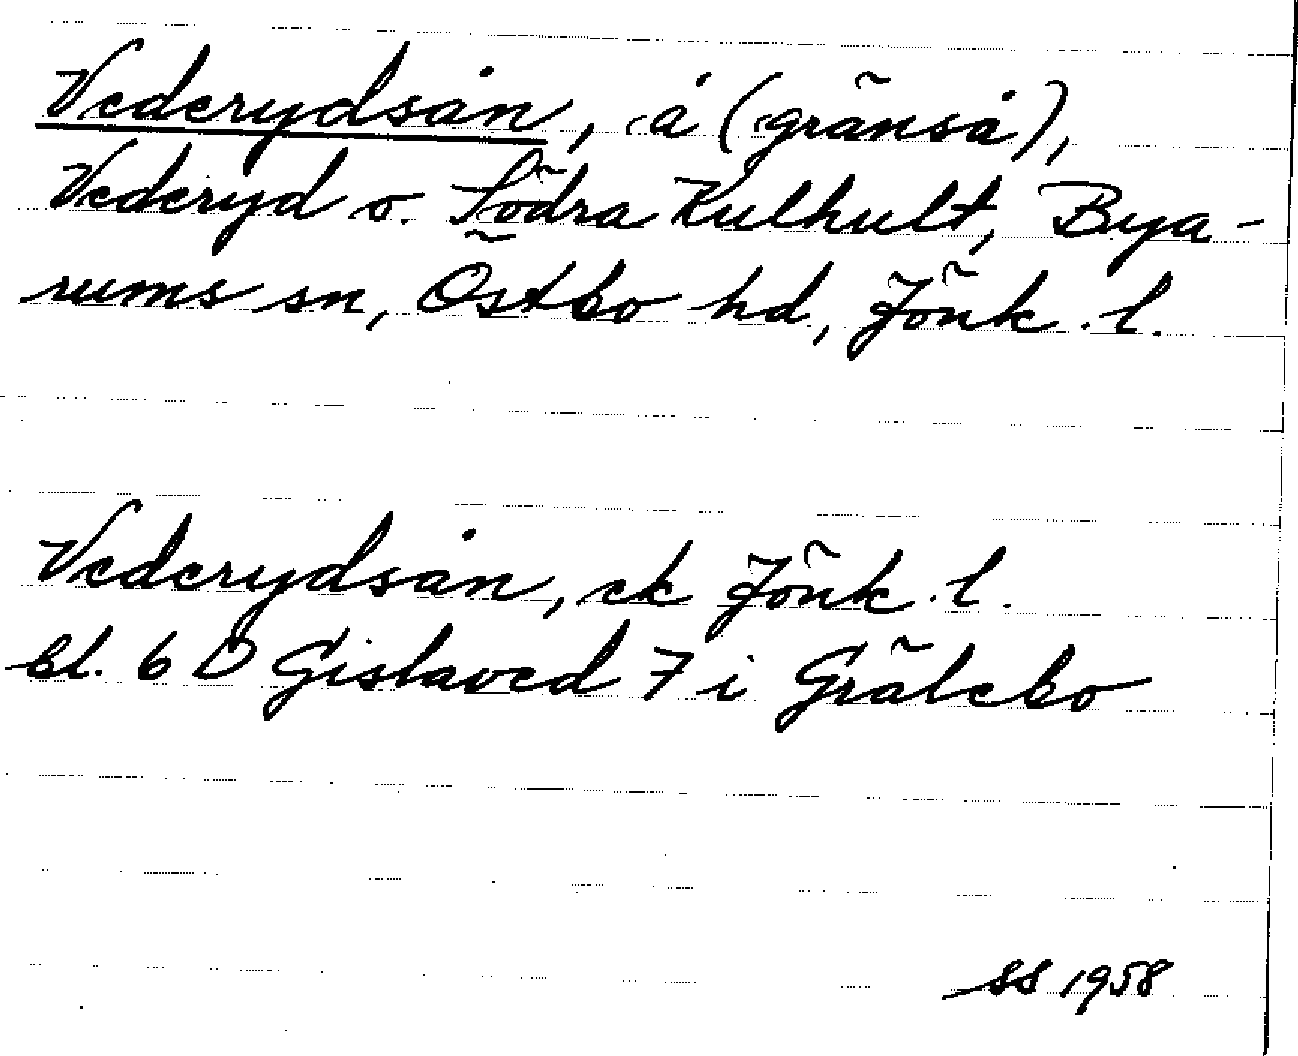 Vederydsån, å (gränså),
Vederyd o. Södra Kulhult, Bya-
rums sn, Östbo hd, Jönk. l.
Vederydsån, ek Jönk. l.
bl. 6 D Gislaved 7 i Grälebo
SS 1958